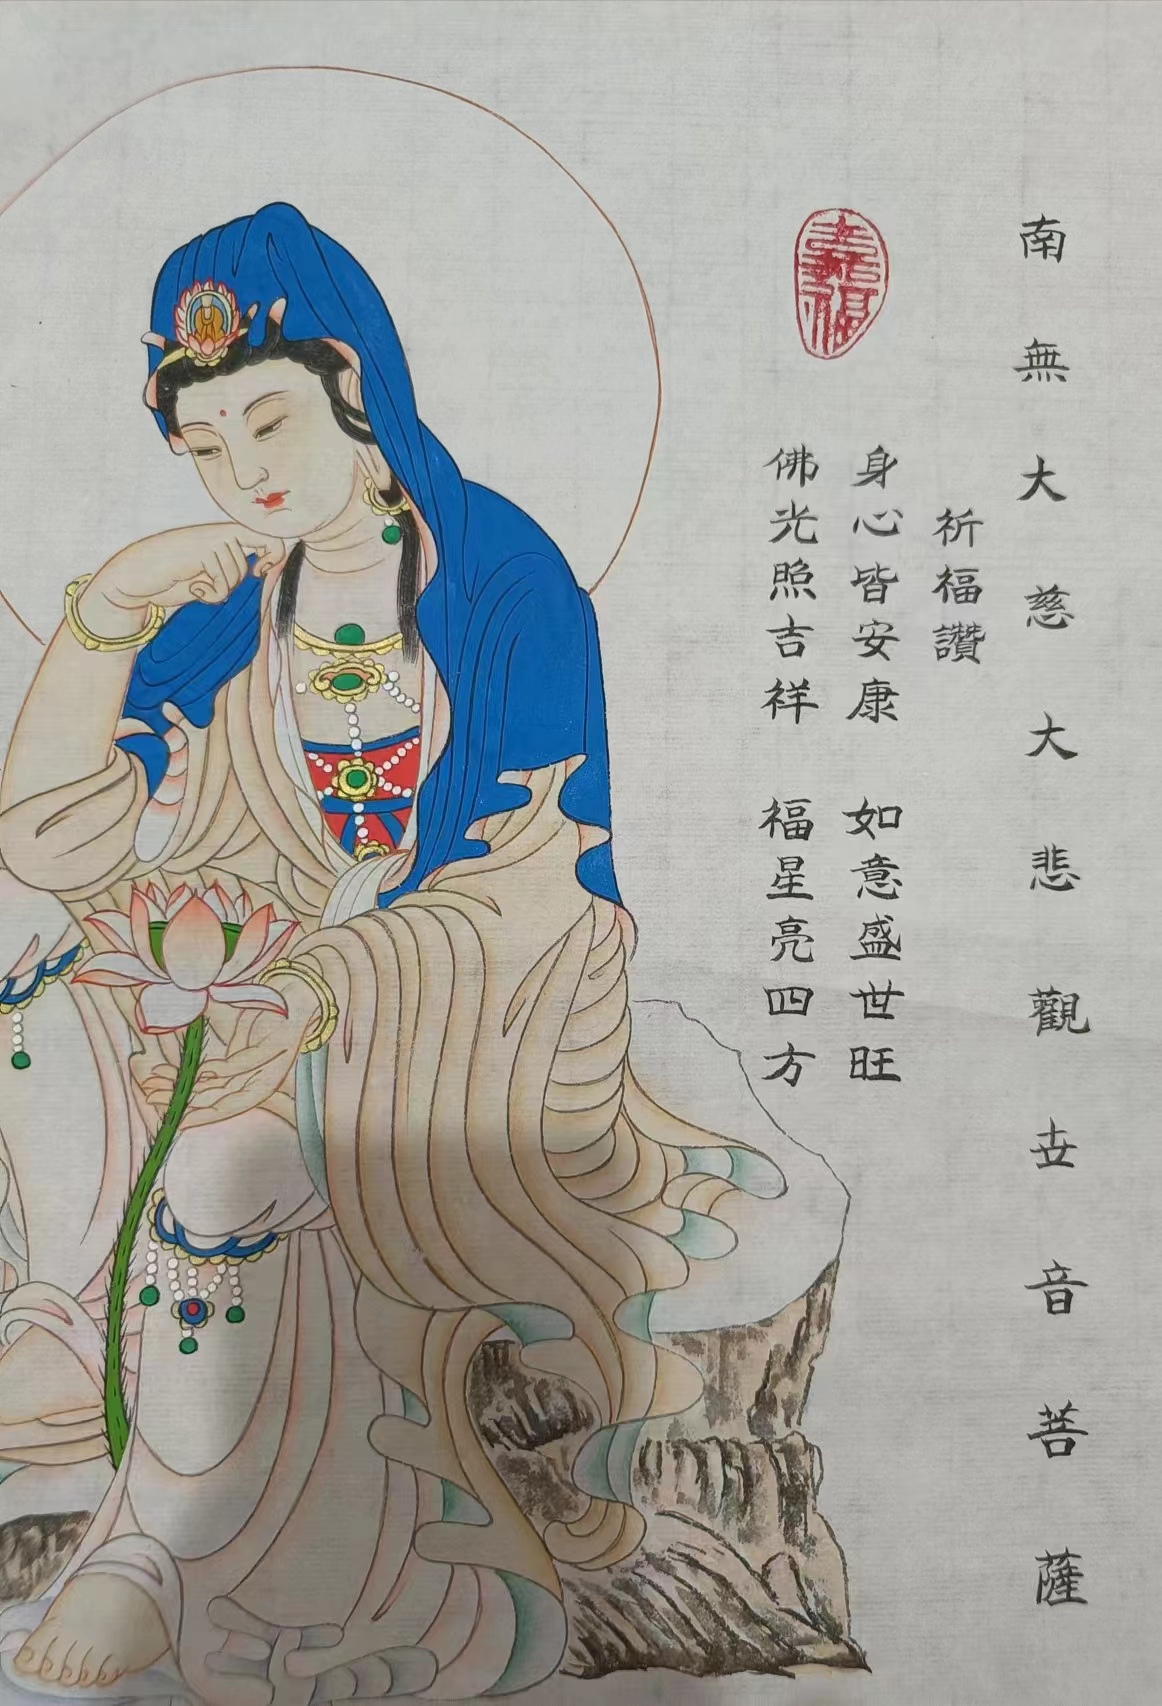 南無大慈大悲觀世音菩薩
祈福讚
身心皆安康 如意盛世旺
佛光照吉祥 福星亮四方